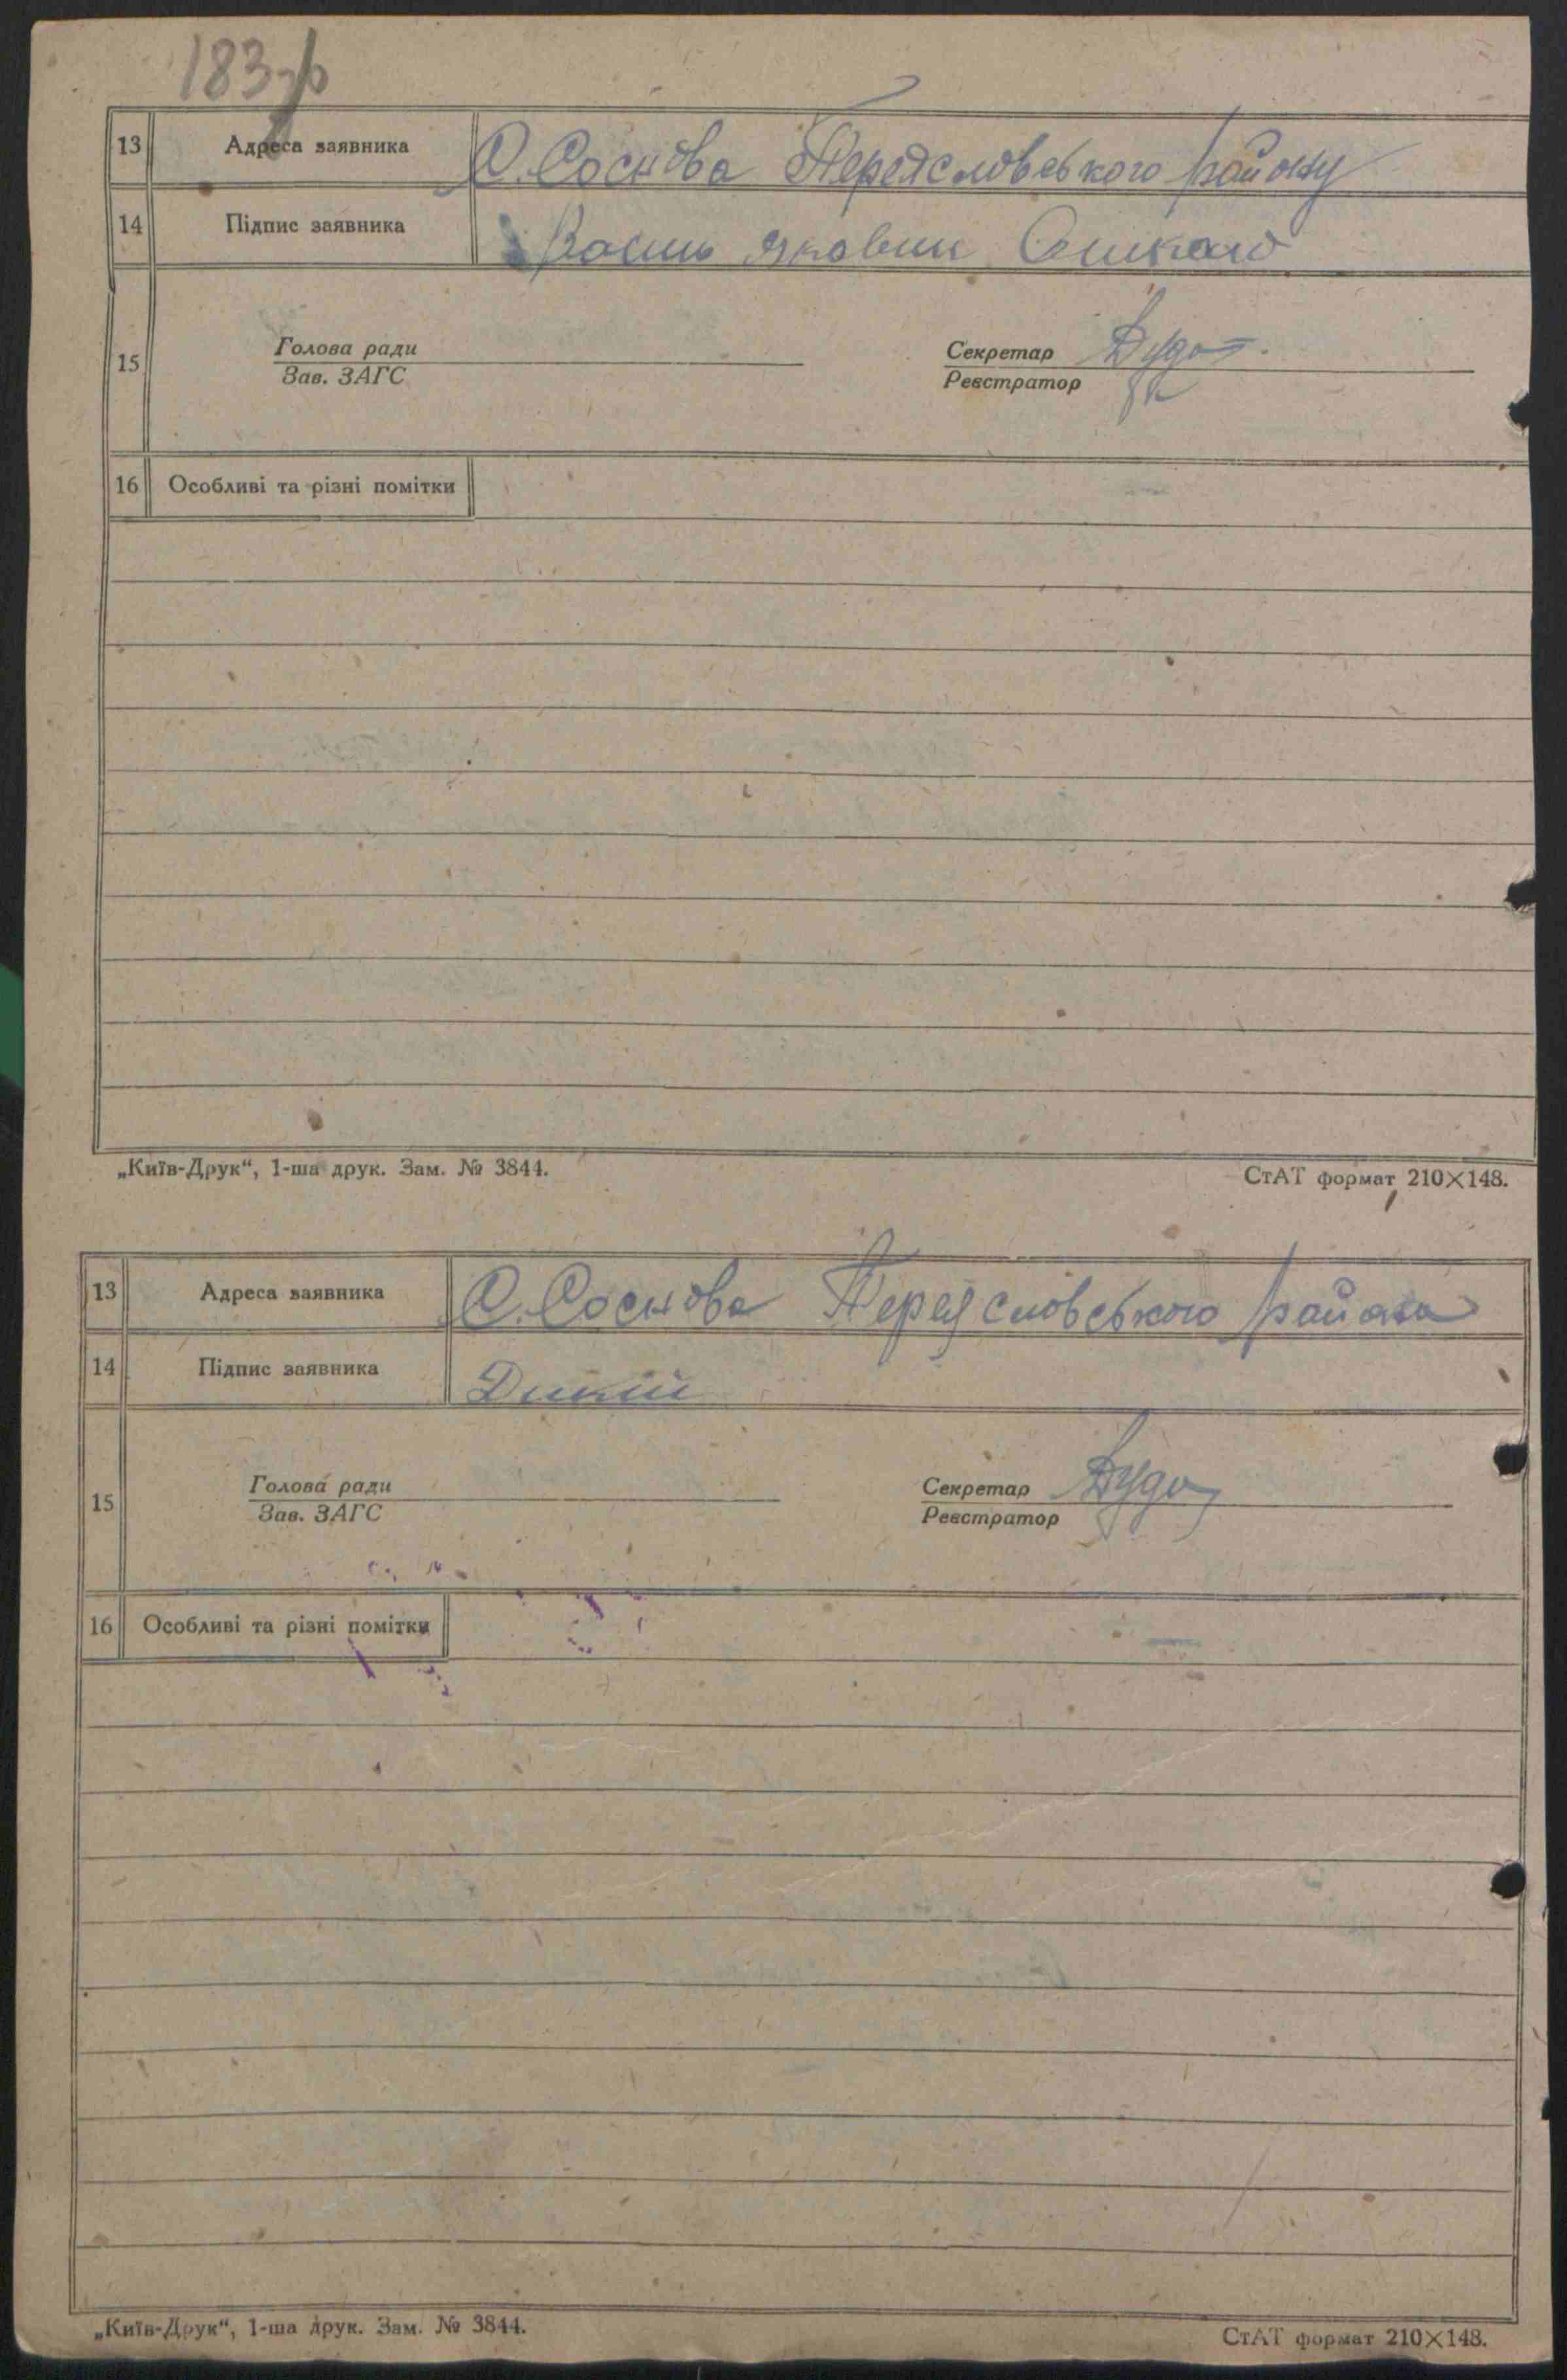 183
13 Адреса заявника С. Соснова Переясловського району
14 Підпис заявника
15 Голова ради Секретар
Зав. ЗАГС Реєстратор
16 Особливі та різні помітки
„Київ-Друк“, 1-ша друк. Зам. № 3844. СтАТ формат 210×148.
13 Адреса заявника С. Соснова Переясловського района
14 Підпис заявника Дикий
15 Голова ради Секретар
Зав. ЗАГС Реєстратор
16 Особливі та різні помітки
„Київ-Друк“, 1-ша друк. Зам. № 3844. СтАТ формат 210×148.